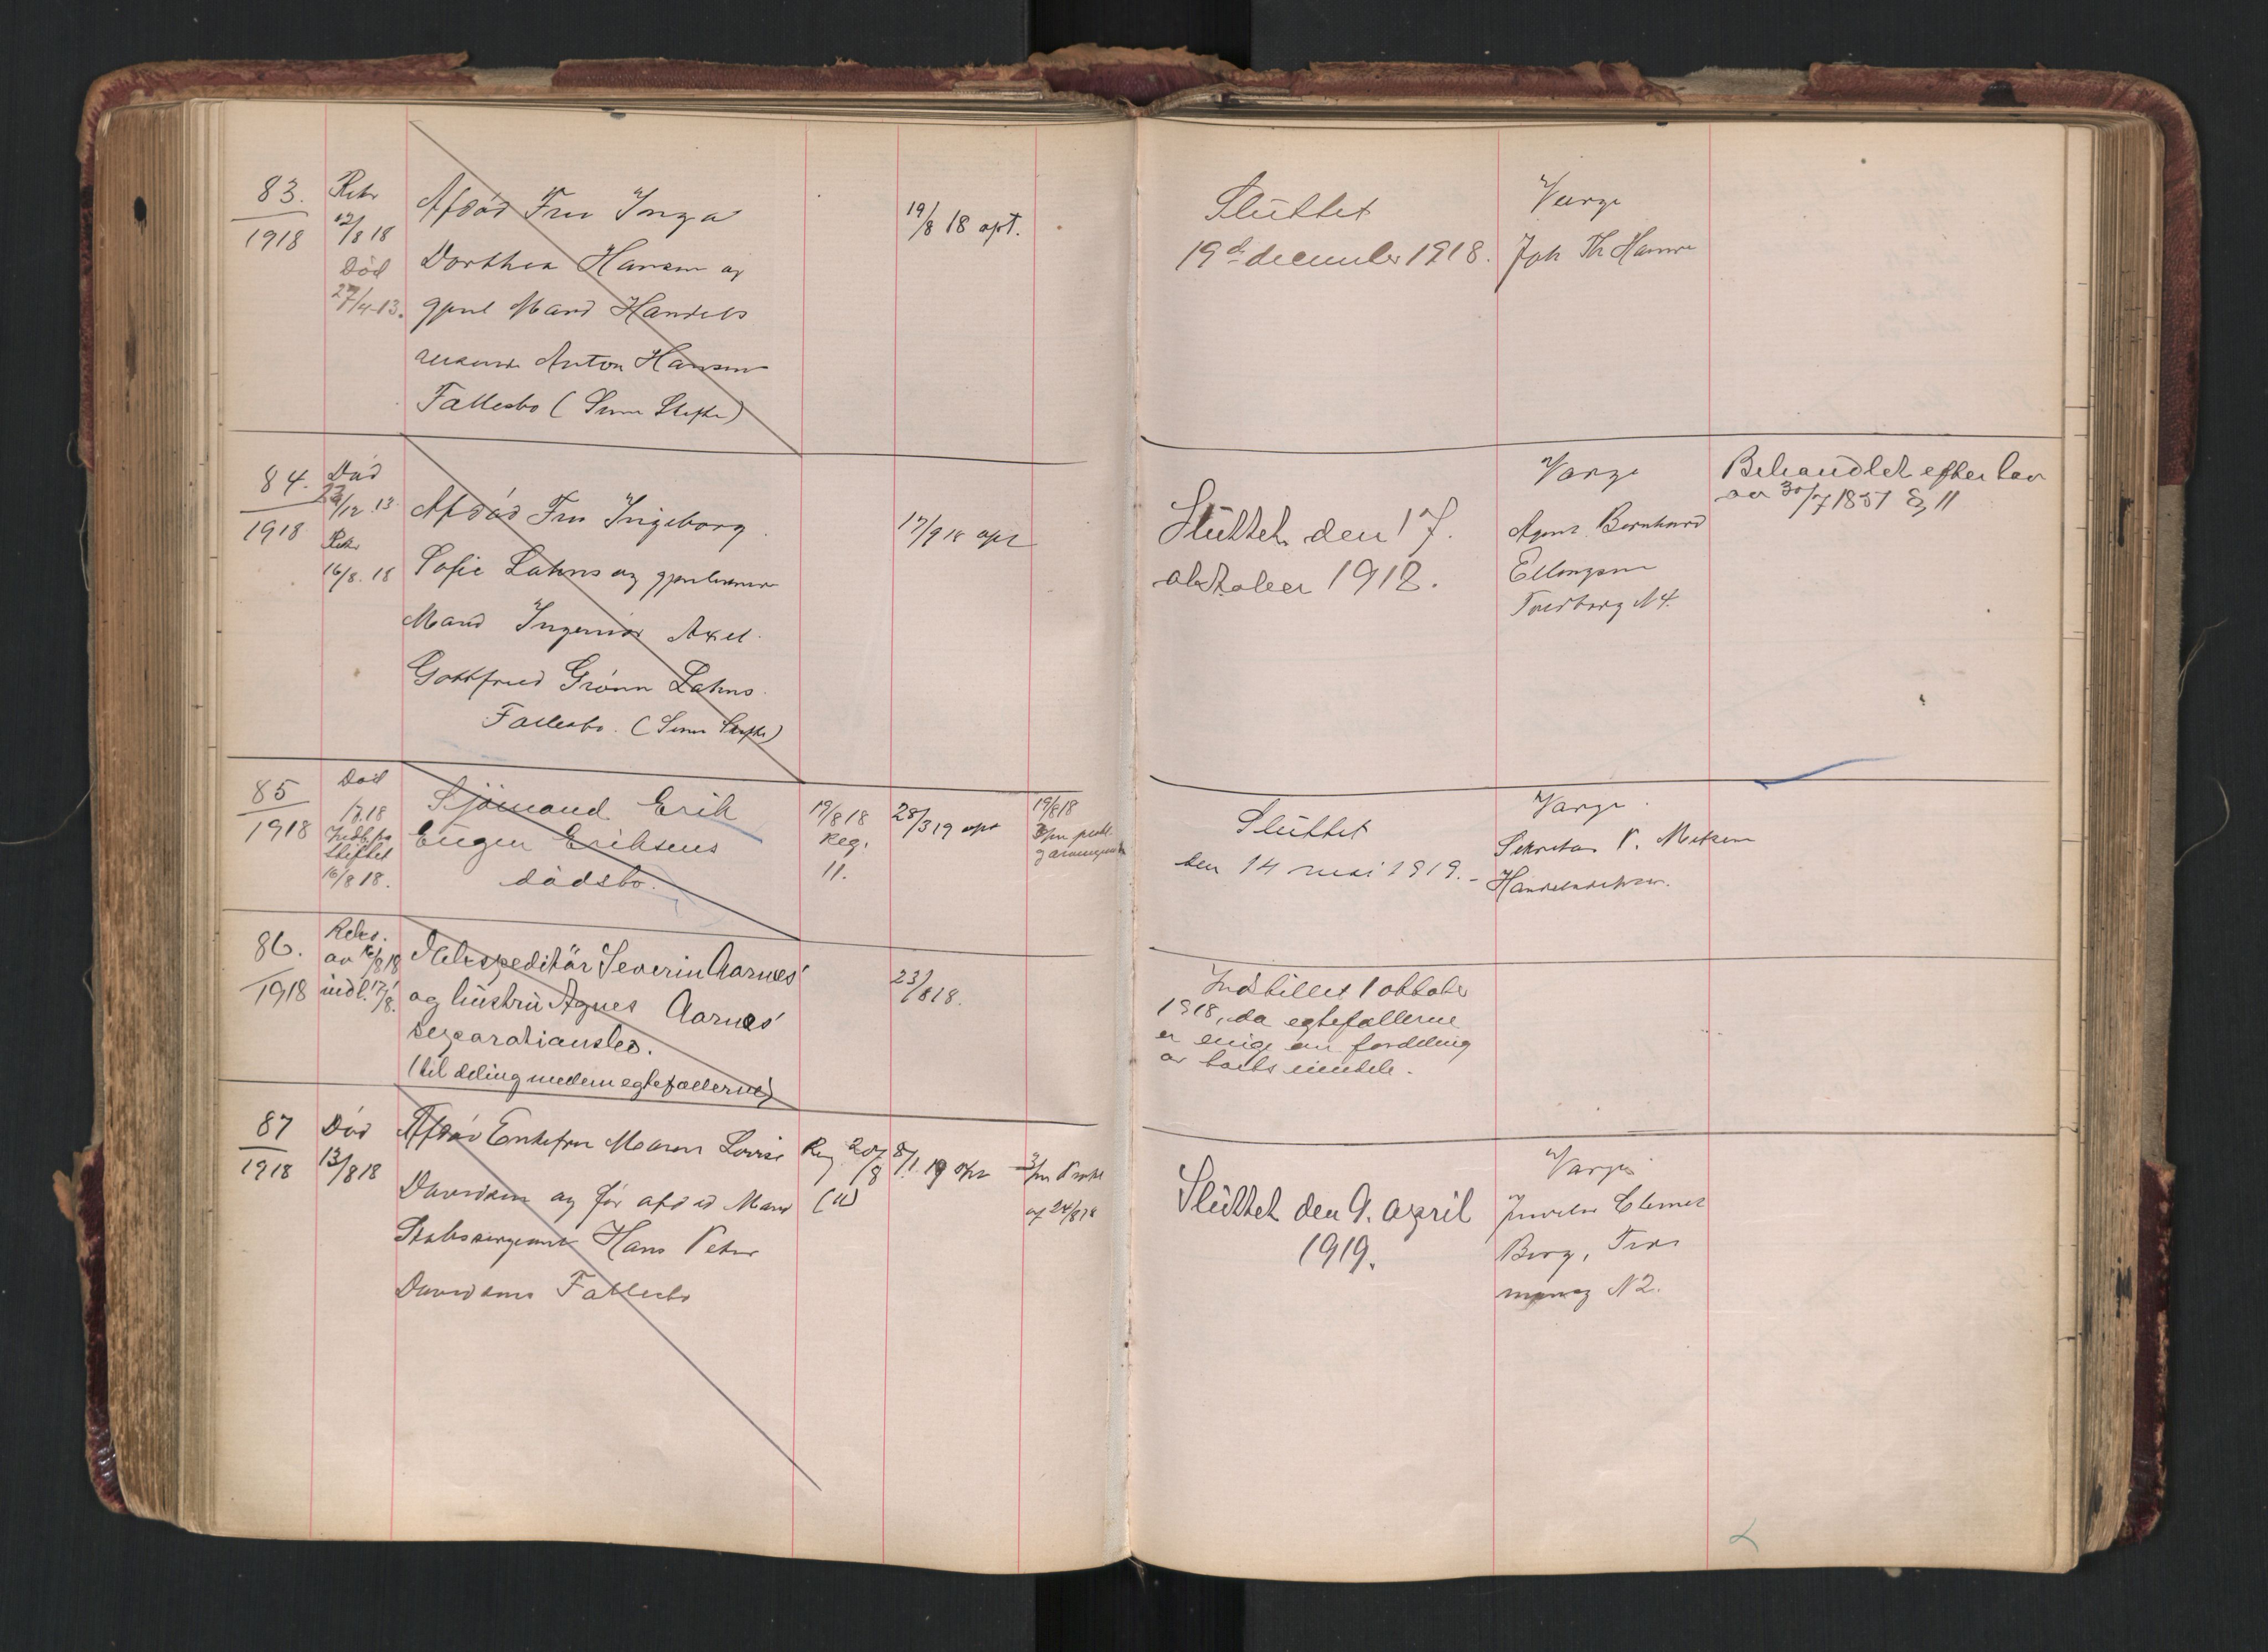 83.
1918
Rekv
12/8 18
Död
27/4-13.
Afdød Fru Inga
Dorthea Hansen og
gjenl Mand Handels
Anton Hansen
Fællesbo (Sum Skifte)
19/8 18 opt.
Sluttet
19de december 1918.
Værge
Joh Th Hansen
84.
1918
Død
23/12.13
Rekv
16/8.18
Afdød Fru Ingeborg
Sofie Lahns og gjenlevende
Mand Ingeniør Axel
Gottfried Grönn Lahns
Fællesbo. (Sum Skifte)
17/9 18 opt
Sluttet den 17.
oktober 1918.
Værge
Agent Bernhard
Ellingsen
Torvborg N 4.
Behandlet efter lov
av 30/7 1851 § 11
85
1918
Död
Indb. fra
Skiftet
16/8 18.
Sjömand Erik
Eugen Eriksens
dödsbo.
19/8 18
Reg.
11.
28/3 19 opt
19/8 18
3/m prokl.
Sluttet
den 14 mai 1919.-
Værge
Sekretær P.
86.
1918
Rekv.
av 16/8 18
indl. 17/8.
Ekspeditör Severin Aarnes'
og hustru Agnes Aarnes'
separationsbo.
(til deling mellem egtefællerne)
23/8 18.
Indstillet 1 oktober
1918, da egtefællerne
er enige om fordeling
av boets inntekt.
87
1918
Død
13/8 18
Afdød Enkefru Maren Lovise
Davidsen og før afdød Mand
Stabssergeant Hans Peter
Davidsens Fællesbo
Reg. 20/8
(11)
8/1. 19 opt
3/m Prokl
af 24/8 18
Sluttet den 9. april
1919.
Værge
Juveler Clemet
Berg,
N 2.